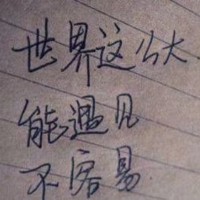 世界这么大
能遇见
不容易